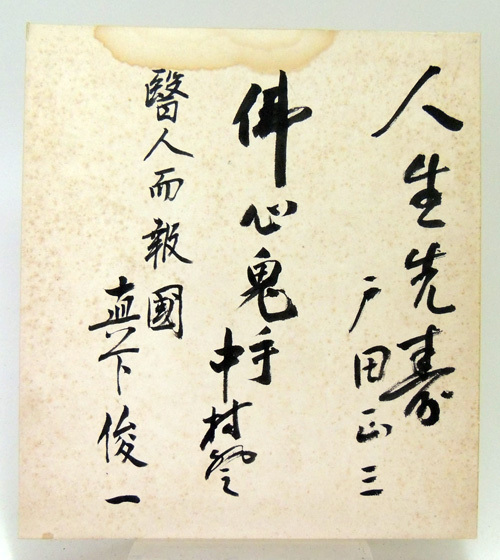 人生先壽
戸田正三
佛心鬼手
中村登
醫人而報國
真下俊一